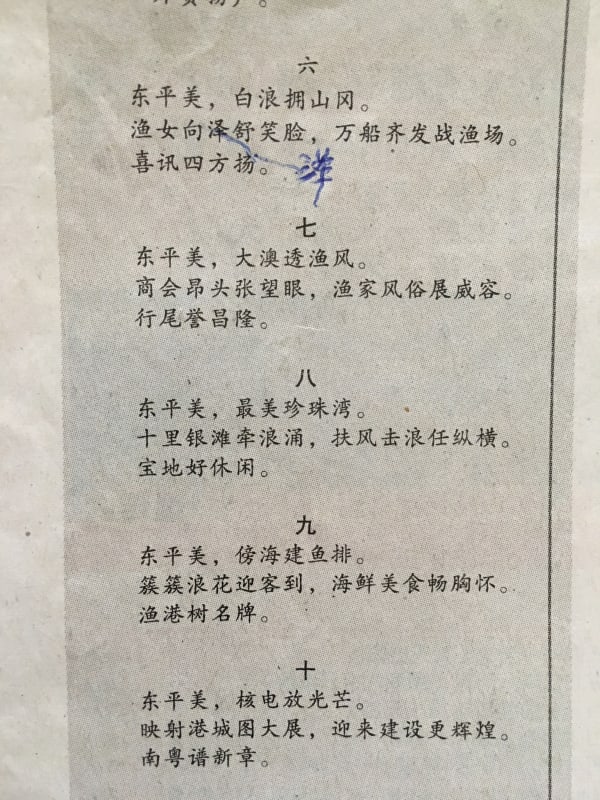 六
东平美，白浪拥山冈。
渔女向泽舒笑脸，万船齐发战渔场。
喜讯四方扬。 洋
七
东平美，大澳透渔风。
商会昂头张望眼，渔家风俗展威容。
行尾誉昌隆。
八
东平美，最美珍珠湾。
十里银滩牵浪涌，扶风击浪任纵横。
宝地好休闲。
九
东平美，傍海建鱼排。
簇簇浪花迎客到，海鲜美食畅胸怀。
渔港树名牌。
十
东平美，核电放光芒。
映射港城图大展，迎来建设更辉煌。
南粤谱新章。